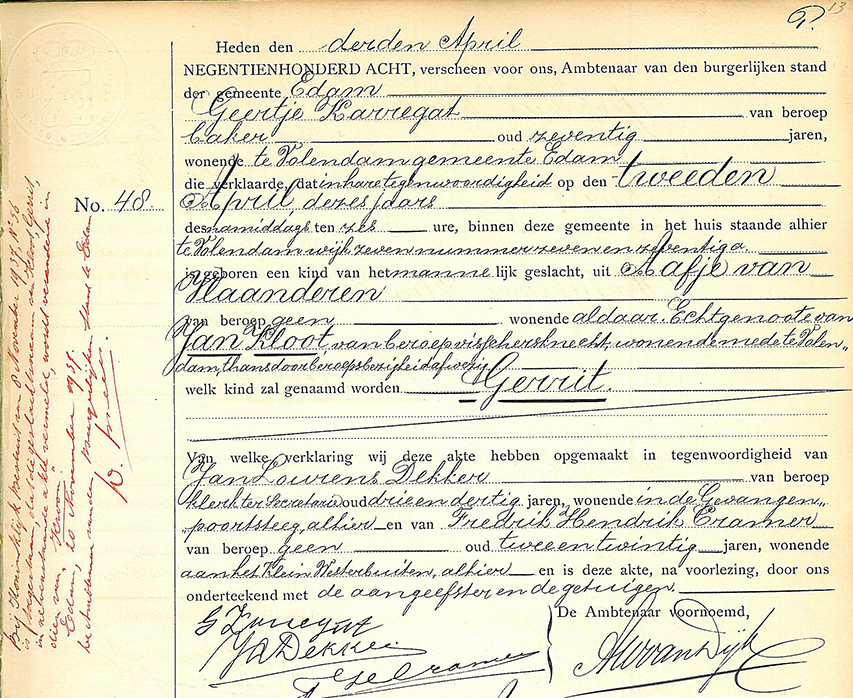 13
Heden den derden April
NEGENTIENHONDERD ACHT, verscheen voor ons, Ambtenaar van den burgerlijken stand
der gemeente Edam
Geertje Karregat van beroep
baker oud zeventig jaren,
wonende te Volendam gemeente Edam
die verklaarde, dat in hare tegenwoordigheid op den tweeden
No. 48.
April, dezes jaars
des namiddags ten zes ure, binnen deze gemeente in het huis staande alhier
te Volendam wijk zeven nummer zeven en zeventig a
is geboren een kind van het manne lijk geslacht, uit Aafje van
Vlaanderen
van beroep geen wonende aldaar. Echtgenoote van
Jan Kloot van beroep visschersknecht, wonende mede te Volen„
dam, thans door beroepsbezigheid afwezig
welk kind zal genaamd worden Gerrit.
Van welke verklaring wij deze akte hebben opgemaakt in tegenwoordigheid van
Jan Lourens Dekker van beroep
klerk ter Secretarie oud drie en dertig jaren, wonende in de Gevangen„
poortsteeg, alhier en van Fredrik Hendrik Cramer
van beroep geen oud twee en twintig jaren, wonende
aan het Klein Westerbuiten, alhier en is deze akte, na voorlezing, door ons
onderteekend met de aangeefster en de getuigen.
De Ambtenaar voornoemd,
JL Dekker
Cramer
van Dijk
Bij Koninklijk besluit van 8 November 1937, No. 36
is toegestaan, dat de geslachtsnaam van den persoon,
in nevenstaande akte vermeld, wordt veranderd in
dien van "Kroon"
Edam, 20 November 1937.
De Ambtenaar van den Burgerlijken Stand te Edam